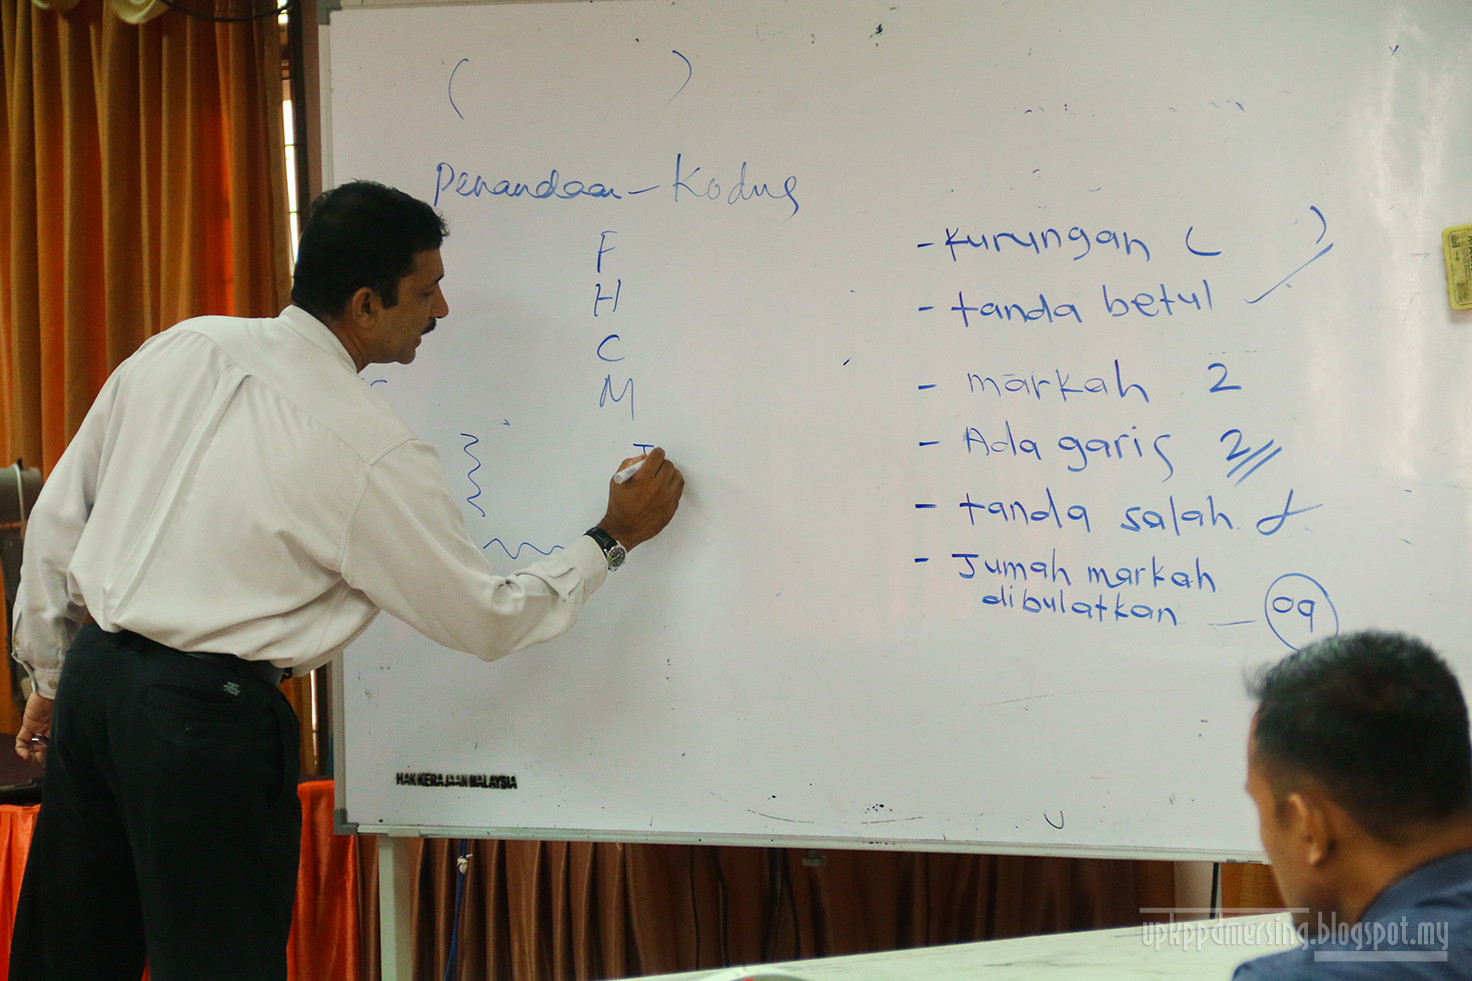 ( )
Penandaan - Kodus
F
H
C
M
- Kurungan ( )
- tanda betul ✓
- markah 2
- Ada garis 2//
- tanda salah
- Jumah markah
dibulatkan - 09
HAK KERAJAAN MALAYSIA
upkppdmersing.blogspot.my